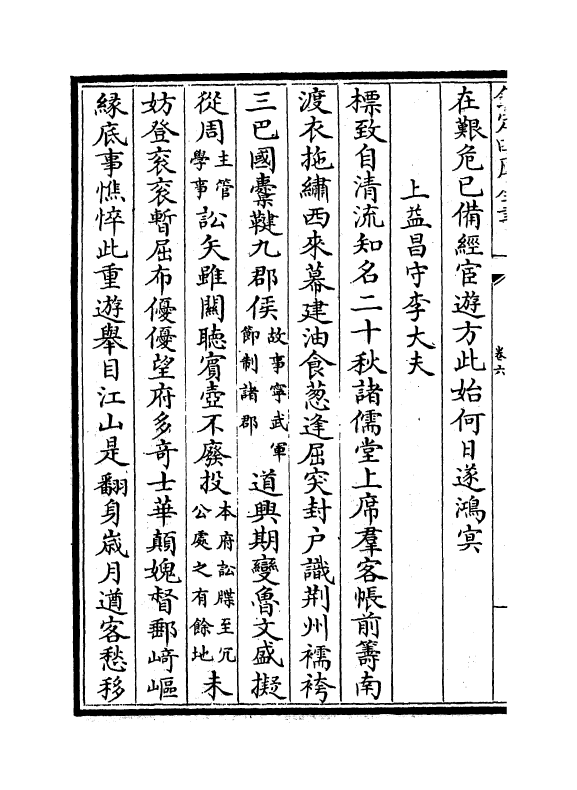 在艱危已備經宦遊方此始何日遂鴻㝠
上益昌守李大夫
標致自清流知名二十秋諸儒堂上席羣客帳前籌南
渡衣拖繡西來幕建油食葱逢屈突封户識荆州襦袴
三巴國櫜鞬九郡侯故事寧武軍節制諸郡道興期變魯文盛擬
從周主管學事訟矢雖關聽賓壺不廢投本府訟牒至冗公處之有餘地未
妨登衮衮暫屈布優優望府多竒士華顛媿督郵﨑嶇
緣底事憔悴此重遊舉目江山是翻身嵗月遒客愁移
卷六